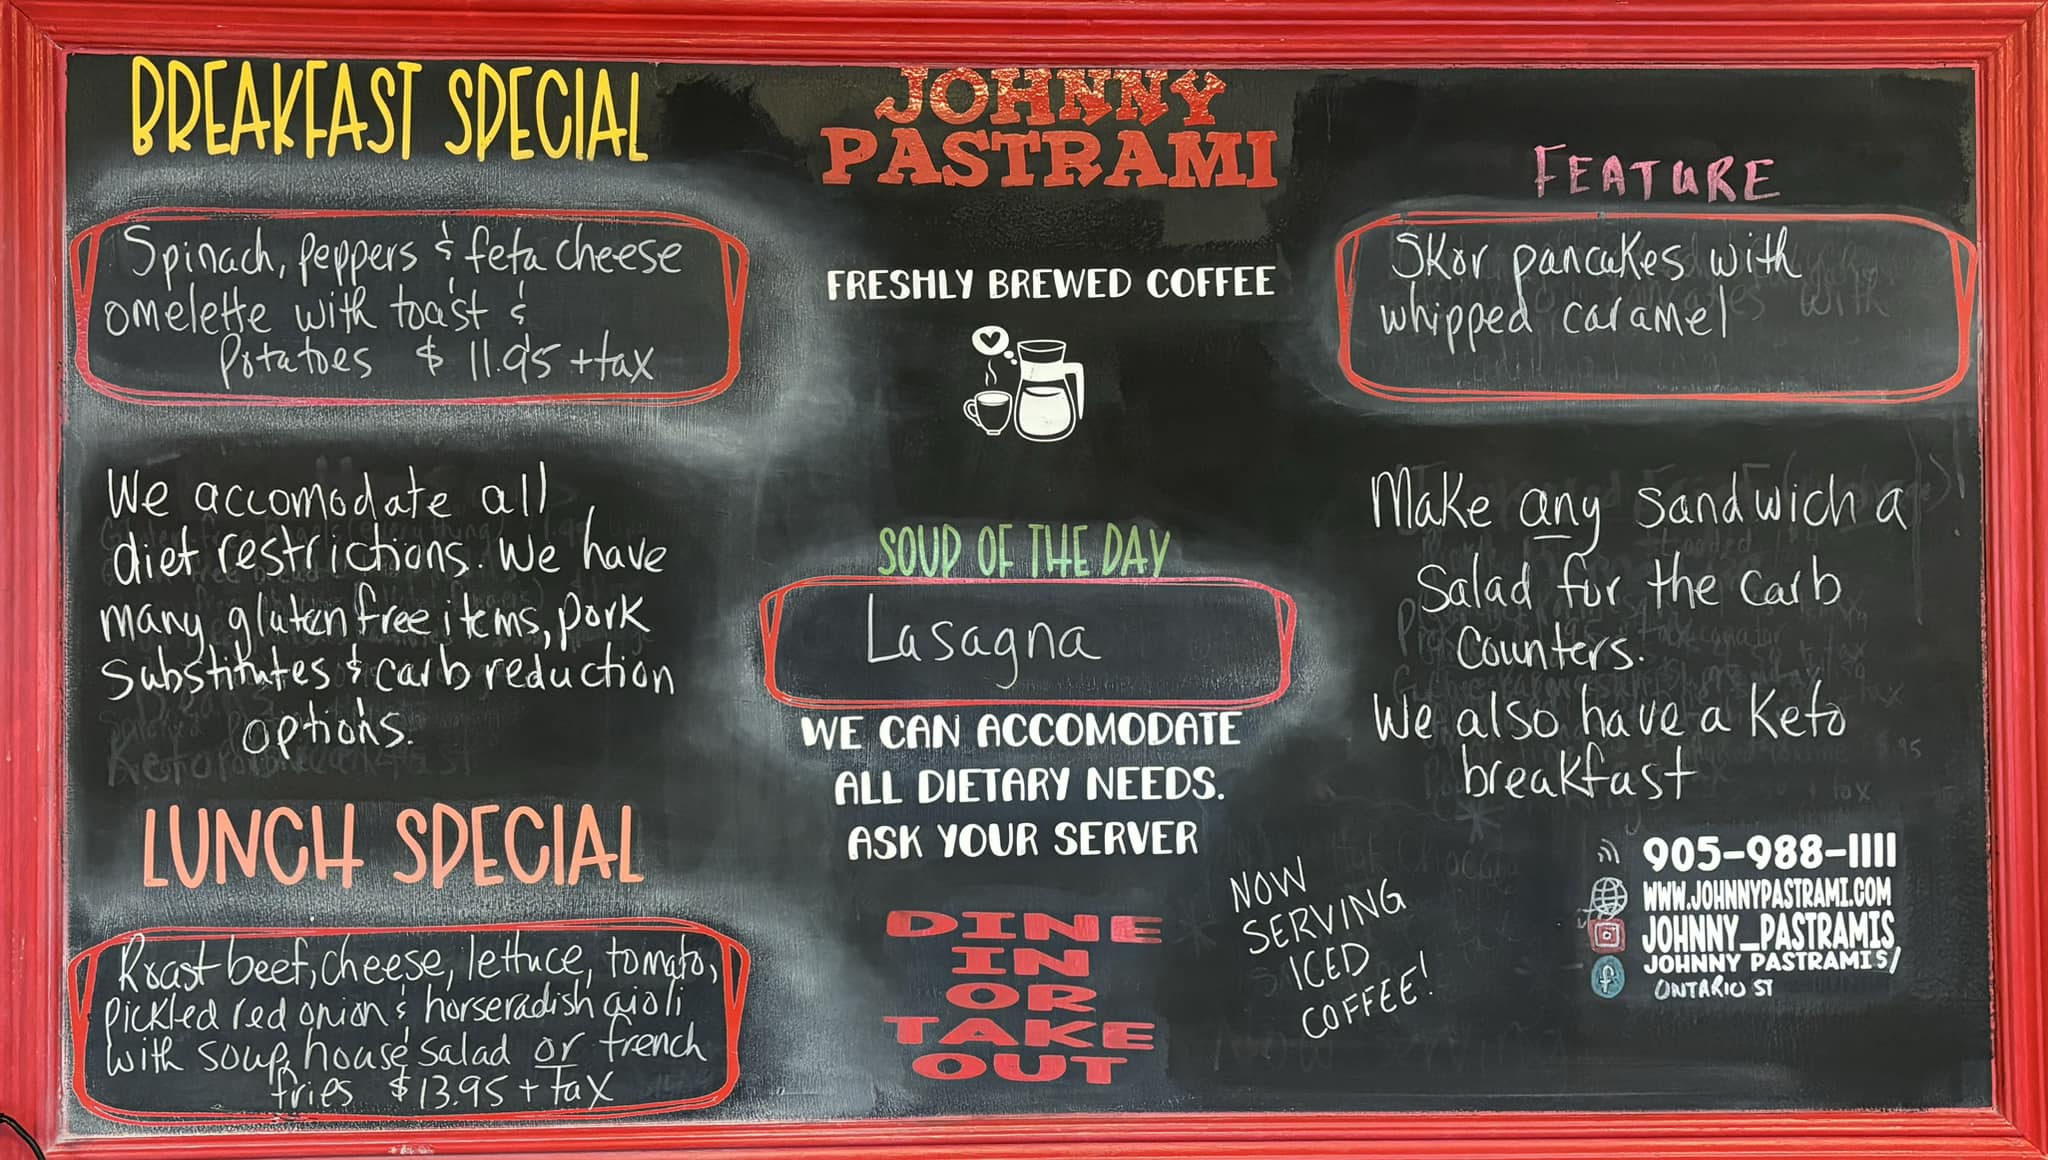 BREAKFAST SPECIAL
Spinach, peppers & feta cheese
omelette with toast &
potatoes $11.95 + tax
We accomodate all
diet restrictions. We have
many gluten free items, pork
substitutes & carb reduction
options.
LUNCH SPECIAL
Roast beef, cheese, lettuce, tomato,
pickled red onion & horseradish aioli
with soup, house salad or french
fries $13.95 + tax
JOHNNY
PASTRAMI
FRESHLY BREWED COFFEE
SOUP OF THE DAY
Lasagna
WE CAN ACCOMODATE
ALL DIETARY NEEDS.
ASK YOUR SERVER
DINE
IN
OR
TAKE
OUT
NOW
SERVING
ICED
COFFEE!
FEATURE
Skor pancakes with
whipped caramel
Make any sandwich a
salad for the carb
counters.
We also have a Keto
breakfast
905-988-1111
WWW.JOHNNYPASTRAMI.COM
JOHNNY_PASTRAMIS
JOHNNY PASTRAMIS/
ONTARIO ST